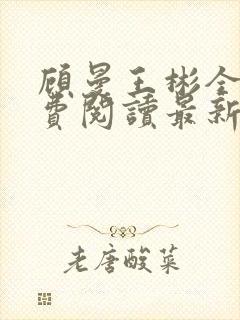 顾曼王彬全
费阅读最新
老唐酸菜